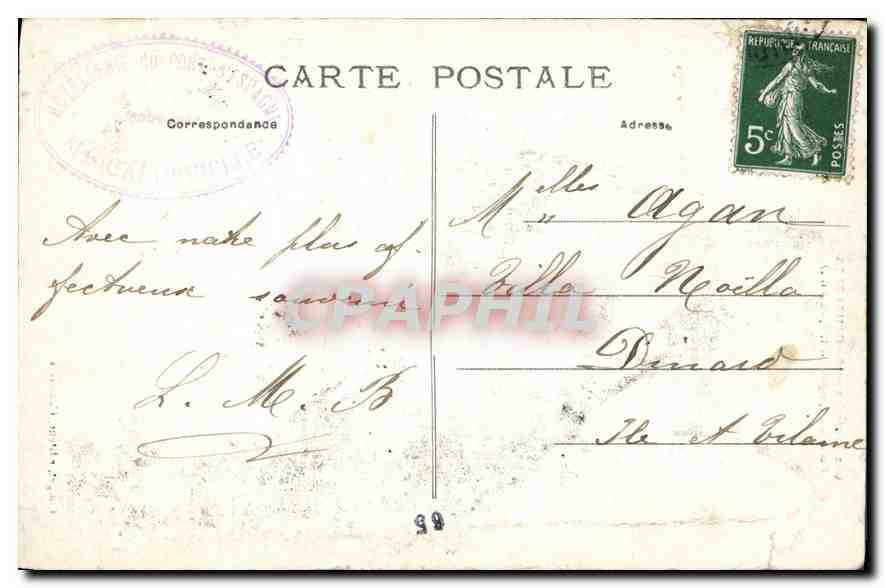 CARTE POSTALE
Correspondance
Adresse
HOTELLERIE du PONT D'ESPAGNE
REPUBLIQUE FRANÇAISE
5c
POSTES
Avec notre plus af-
fectueux souvenir
L. M. B
Melles Agan
Villa Noëlla
Dinard
Ile et Vilaine
CPAPHIL
99